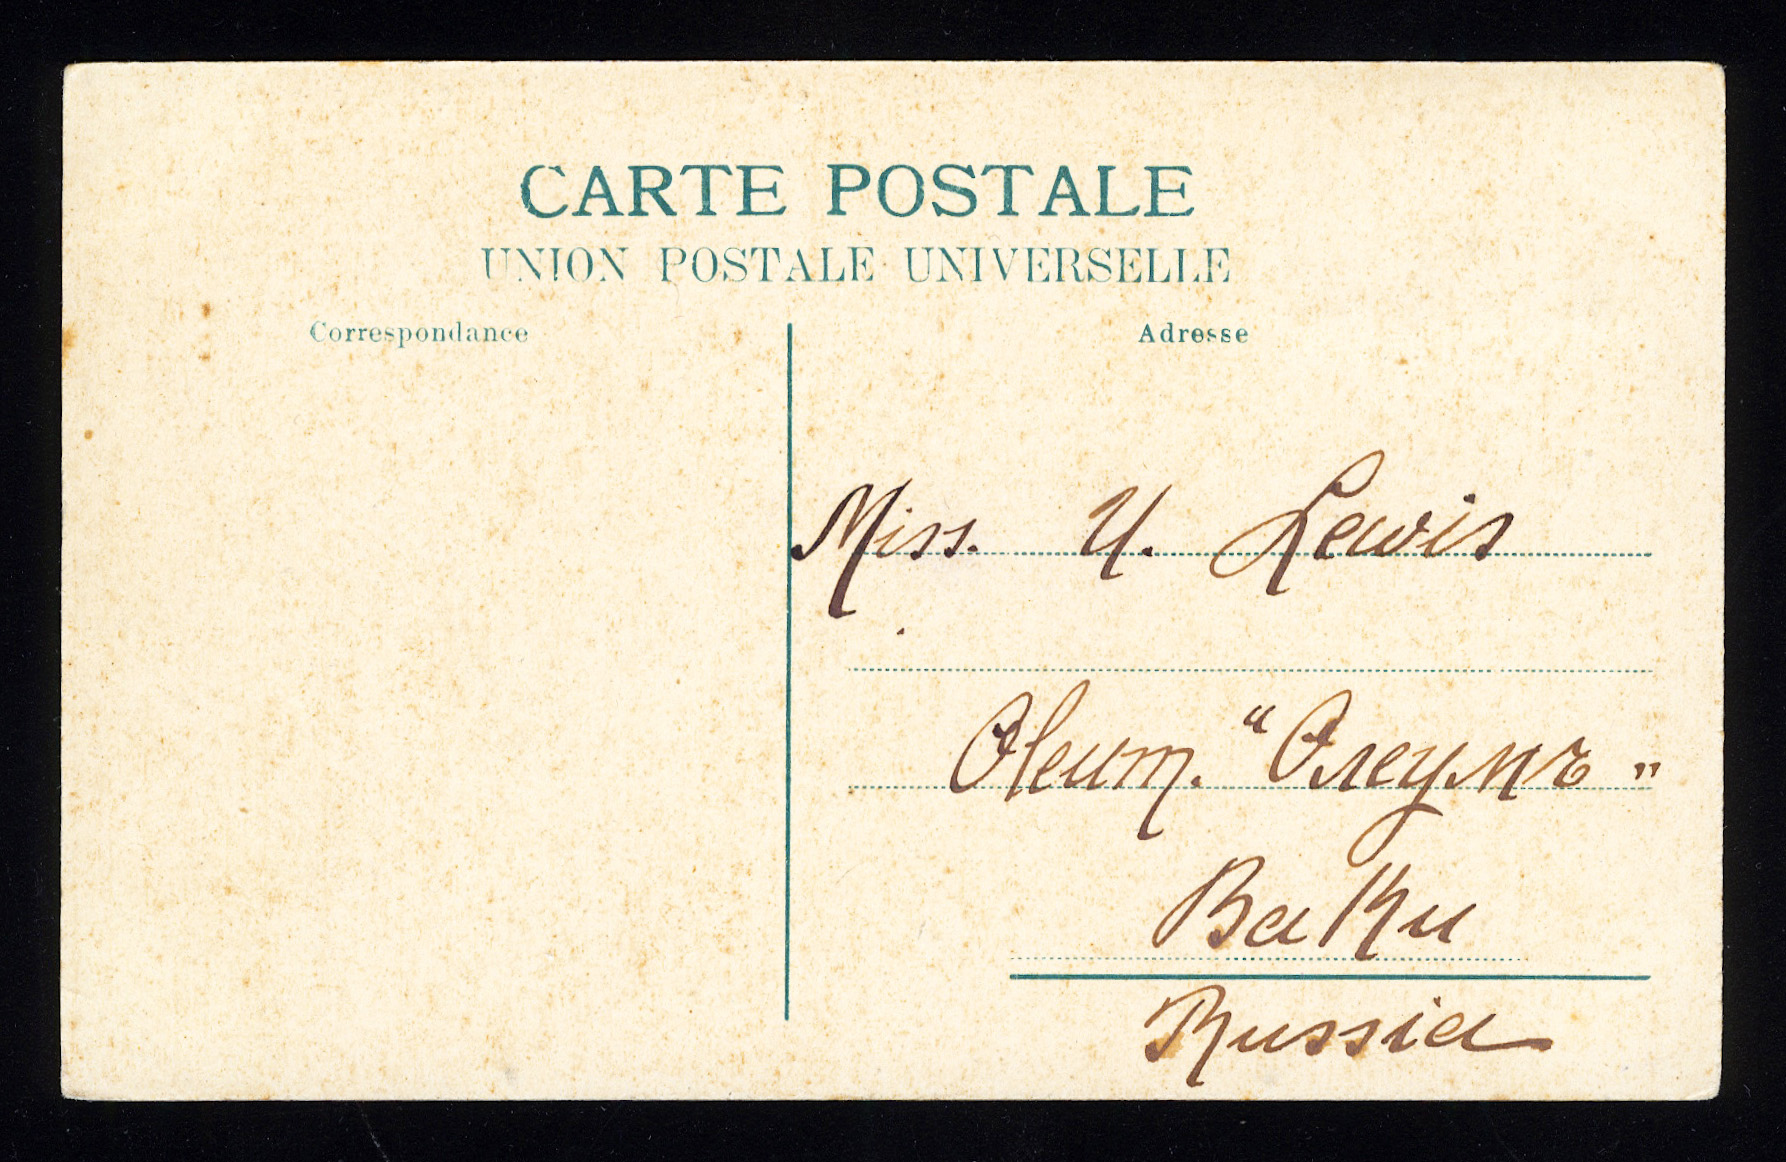 CARTE POSTALE
UNION POSTALE UNIVERSELLE
Correspondance
Adresse
Miss. U. Lewis
Oleum. "Олеумъ"
Baku
Russia